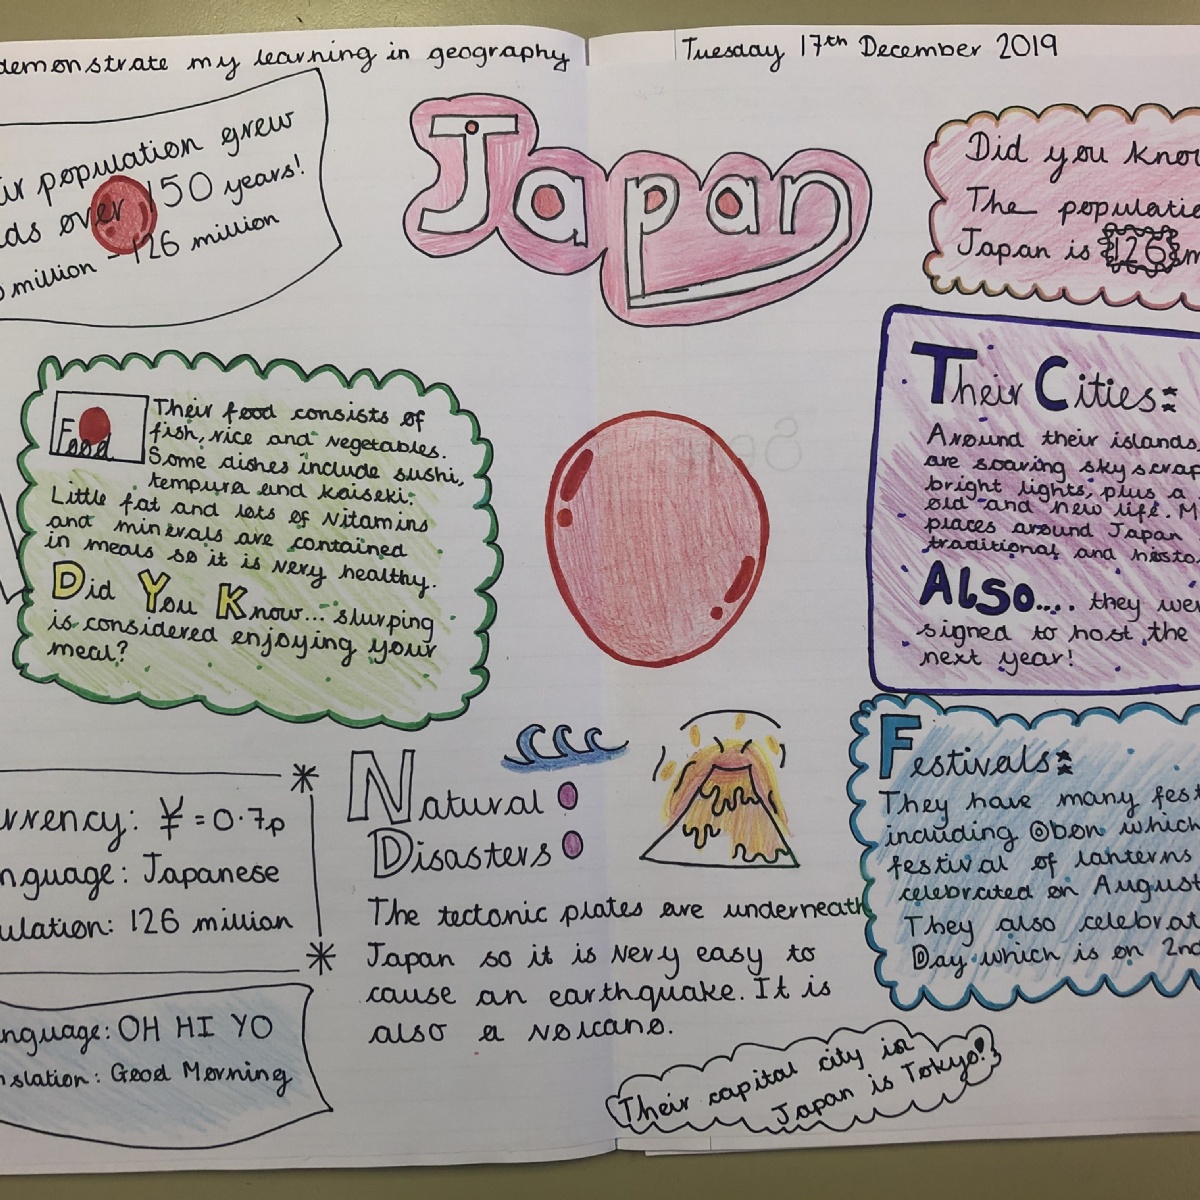 demonstrate my learning in geography
Tuesday 17th December 2019
Japan
population grew
over 150 years!
million - 126 million
Did you know
The populatio
Japan is 126 m
Food
Their food consists of
fish, rice and vegetables.
Some dishes include sushi,
tempura and kaiseki.
Little fat and lots of vitamins
and minerals are contained
in meals so it is very healthy.
Did You Know... slurping
is considered enjoying your
meal?
Their Cities:
Around their islands,
are soaring skyscrap
bright lights, plus a
old and new life. M
places around Japan
traditional and histo
Also.... they wer
signed to host the
next year!
rrency: ¥ = 0.7p
nguage: Japanese
ulation: 126 million
nguage: OH HI YO
nslation: Good Morning
Natural
Disasters
The tectonic plates are underneath
Japan so it is very easy to
cause an earthquake. It is
also a volcano.
Festivals:
They have many fest
including Obon which
festival of lanterns
celebrated on August
They also celebrat
Day which is on 2nd
Their capital city in
Japan is Tokyo!